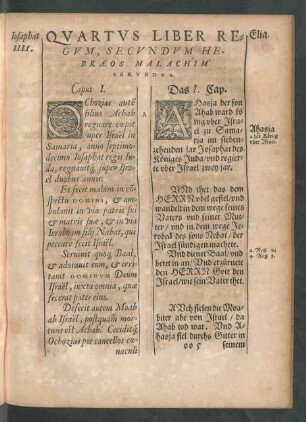 Iosaphat
IIII.
QVARTVS LIBER RE-
GVM, SECVNDVM HE-
BRÆOS MALACHIM
SECVNDVS.
Elia.
Caput I.
OChozias autē
filius Achab
regnare cœpit
super Israel in
Samaria, anno septimo-
decimo Iosaphat regis Iu-
da, regnauitq; super Isra-
el duobus annis.
Et fecit malum in cō-
spectu DOMINI, & am-
bulauit in via patris sui
& matris suæ, & in via
Ieroboam filij Nabat, qui
peccare fecit Israel.
Seruiuit quoq; Baal,
& adorauit eum, & irri-
tauit DOMINVM Deum
Israel, iuxta omnia, quæ
fecerat pater eius.
Defecit autem Moab
ab Israel, postquam mor-
tuus est Achab. Ceciditq;
Ochozias per cancellos cœ-
naculi
A
Das I. Cap.
AHasja der son
Ahab ward kö
nig vber Isra-
el zu Sama-
ria im sieben-
zehenden jar Josaphat des
Königes Juda/ vnd regier-
te vber Israel zwey jar.
VNd thet das dem
HERRN vbel gefiel/ vnd
wandelt in dem wege seines
Vaters vnd seiner Mut-
ter/ vnd in dem wege Jero-
beal des sons Nebat/ der
Israel sündigen machete.
Vnd dienet Baal/ vnd
betet in an/ Vnd erzürnete
den HERRN Gott den
Israel/ wie sein Vater thet.
AVch fielen die Moa-
biter abe von Israel/ da
Ahab tod war. Vnd A-
hasja fiel durchs Gitter in
oo 5 seinem
Ahasja
vber Israel.